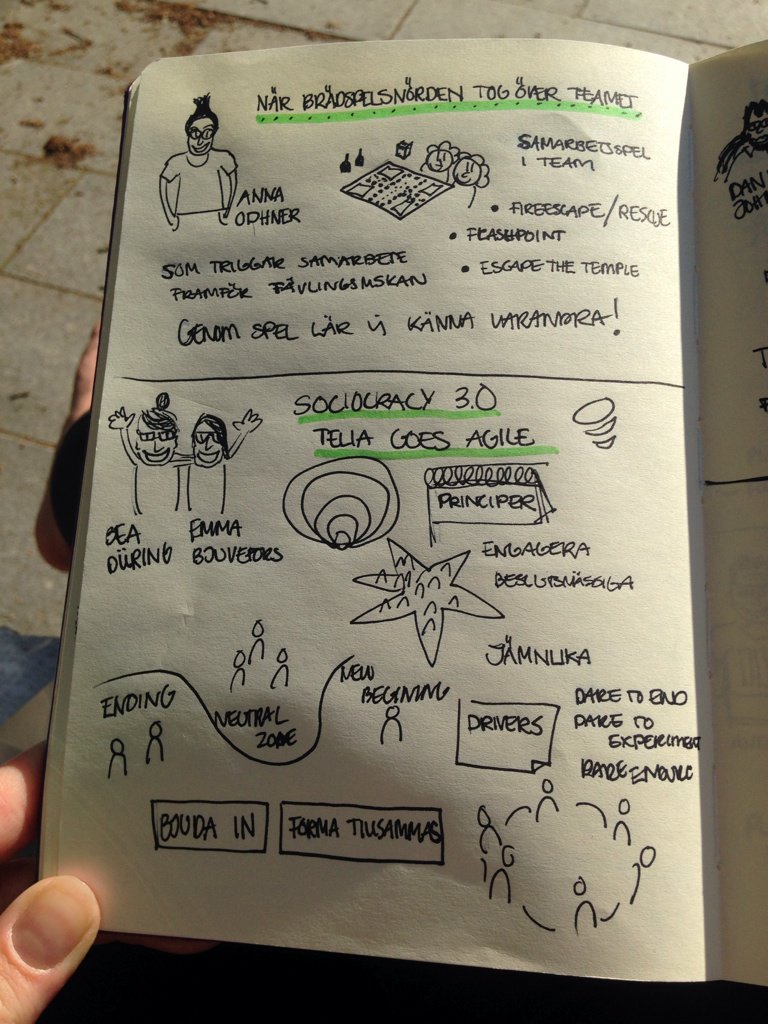 NÄR BRÄDSPELSNÖRDEN TOG ÖVER TEAMET
ANNA
ODHNER
SAMARBETSSPEL
I TEAM
• FIREESCAPE/RESCUE
• FLASHPOINT
• ESCAPE THE TEMPLE
SOM TRIGGAR SAMARBETE
FRAMFÖR TÄVLINGSMSKAN
GENOM SPEL LÄR VI KÄNNA VARANDRA!
SOCIOCRACY 3.0
TELIA GOES AGILE
BEA
DÜRING
EMMA
PRINCIPER
ENGAGERA
BESLUTSMÄSSIGA
JÄMNLIKA
ENDING
NEUTRAL
ZONE
NEW
BEGINING
DRIVERS
DARE TO END
DARE TO
EXPERIMENT
DARE
BJUDA IN
FORMA TILLSAMMAS
DAN